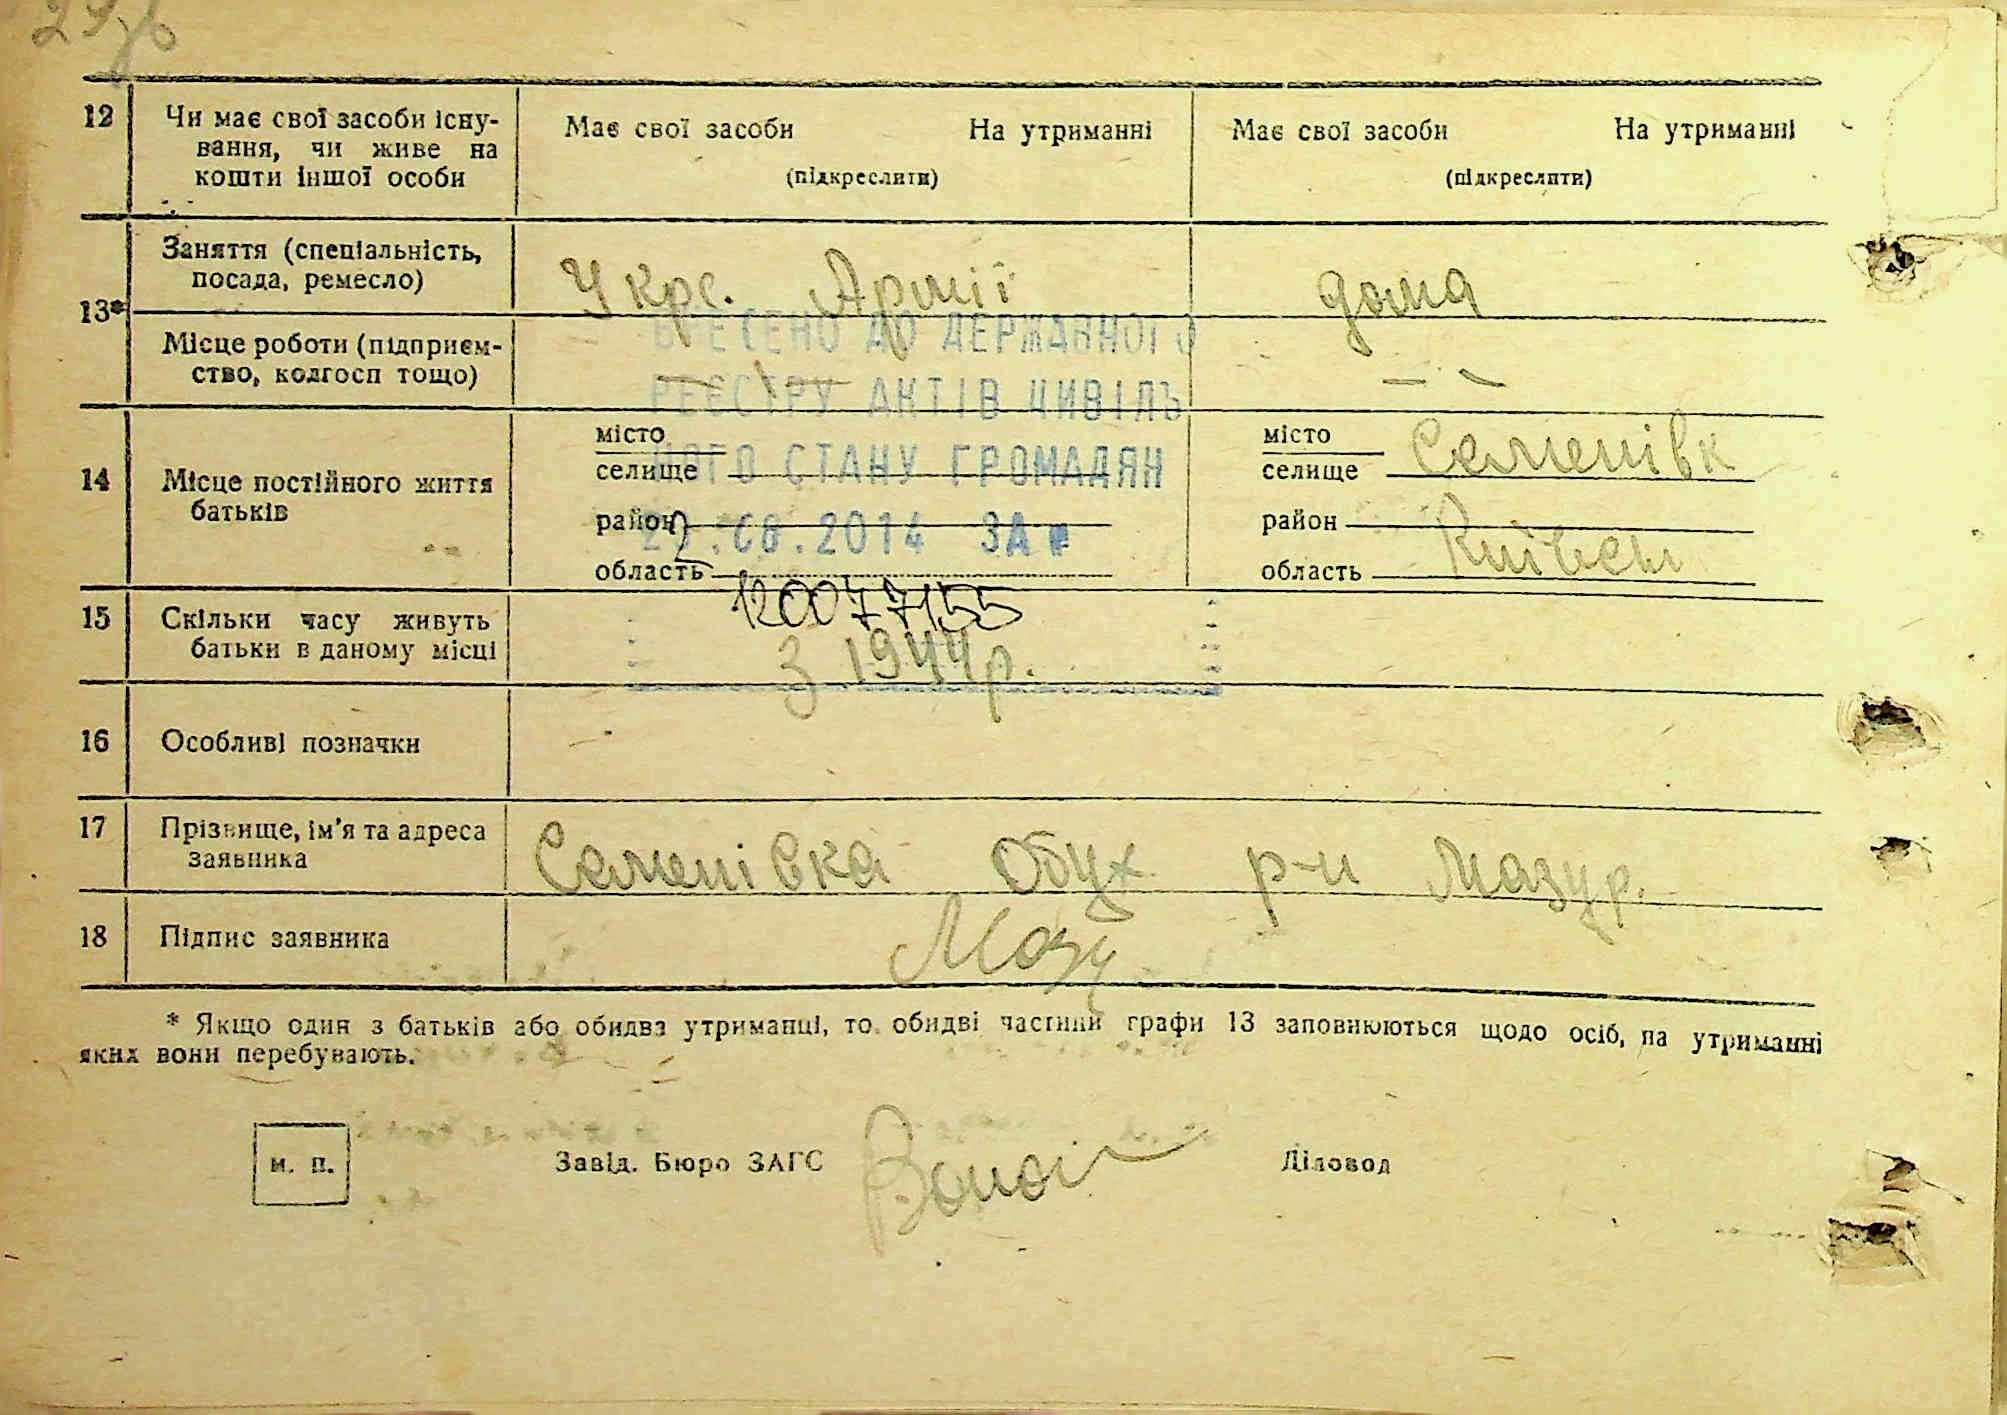 12
Чи має свої засоби існу-
вання, чи живе на
кошти іншої особи
Має свої засоби На утриманні
(підкреслити)
Має свої засоби На утриманні
(підкреслити)
13*
Заняття (спеціальність,
посада, ремесло)
У крс. Армії
дома
Місце роботи (підприєм-
ство, колгосп тощо)
— —
— —
ВНЕСЕНО ДО ДЕРЖАВНОГО
РЕЄСТРУ АКТІВ ЦИВІЛЬ
НОГО СТАНУ ГРОМАДЯН
.08.2014 ЗА №
120077155
14
Місце постійного життя
батьків
місто
селище
район
область
місто
селище Семенівк
район
область Київськ
15
Скільки часу живуть
батьки в даному місці
З 1944 р.
16
Особливі позначки
—
17
Прізвище, ім'я та адреса
заявника
Семенівка Обух р-н Мазур.
18
Підпис заявника
Мазу
* Якщо один з батьків або обидва утриманці, то обидві частини графи 13 заповнюються щодо осіб, на утриманні
яких вони перебувають.
м. п.
Завід. Бюро ЗАГС
Діловод